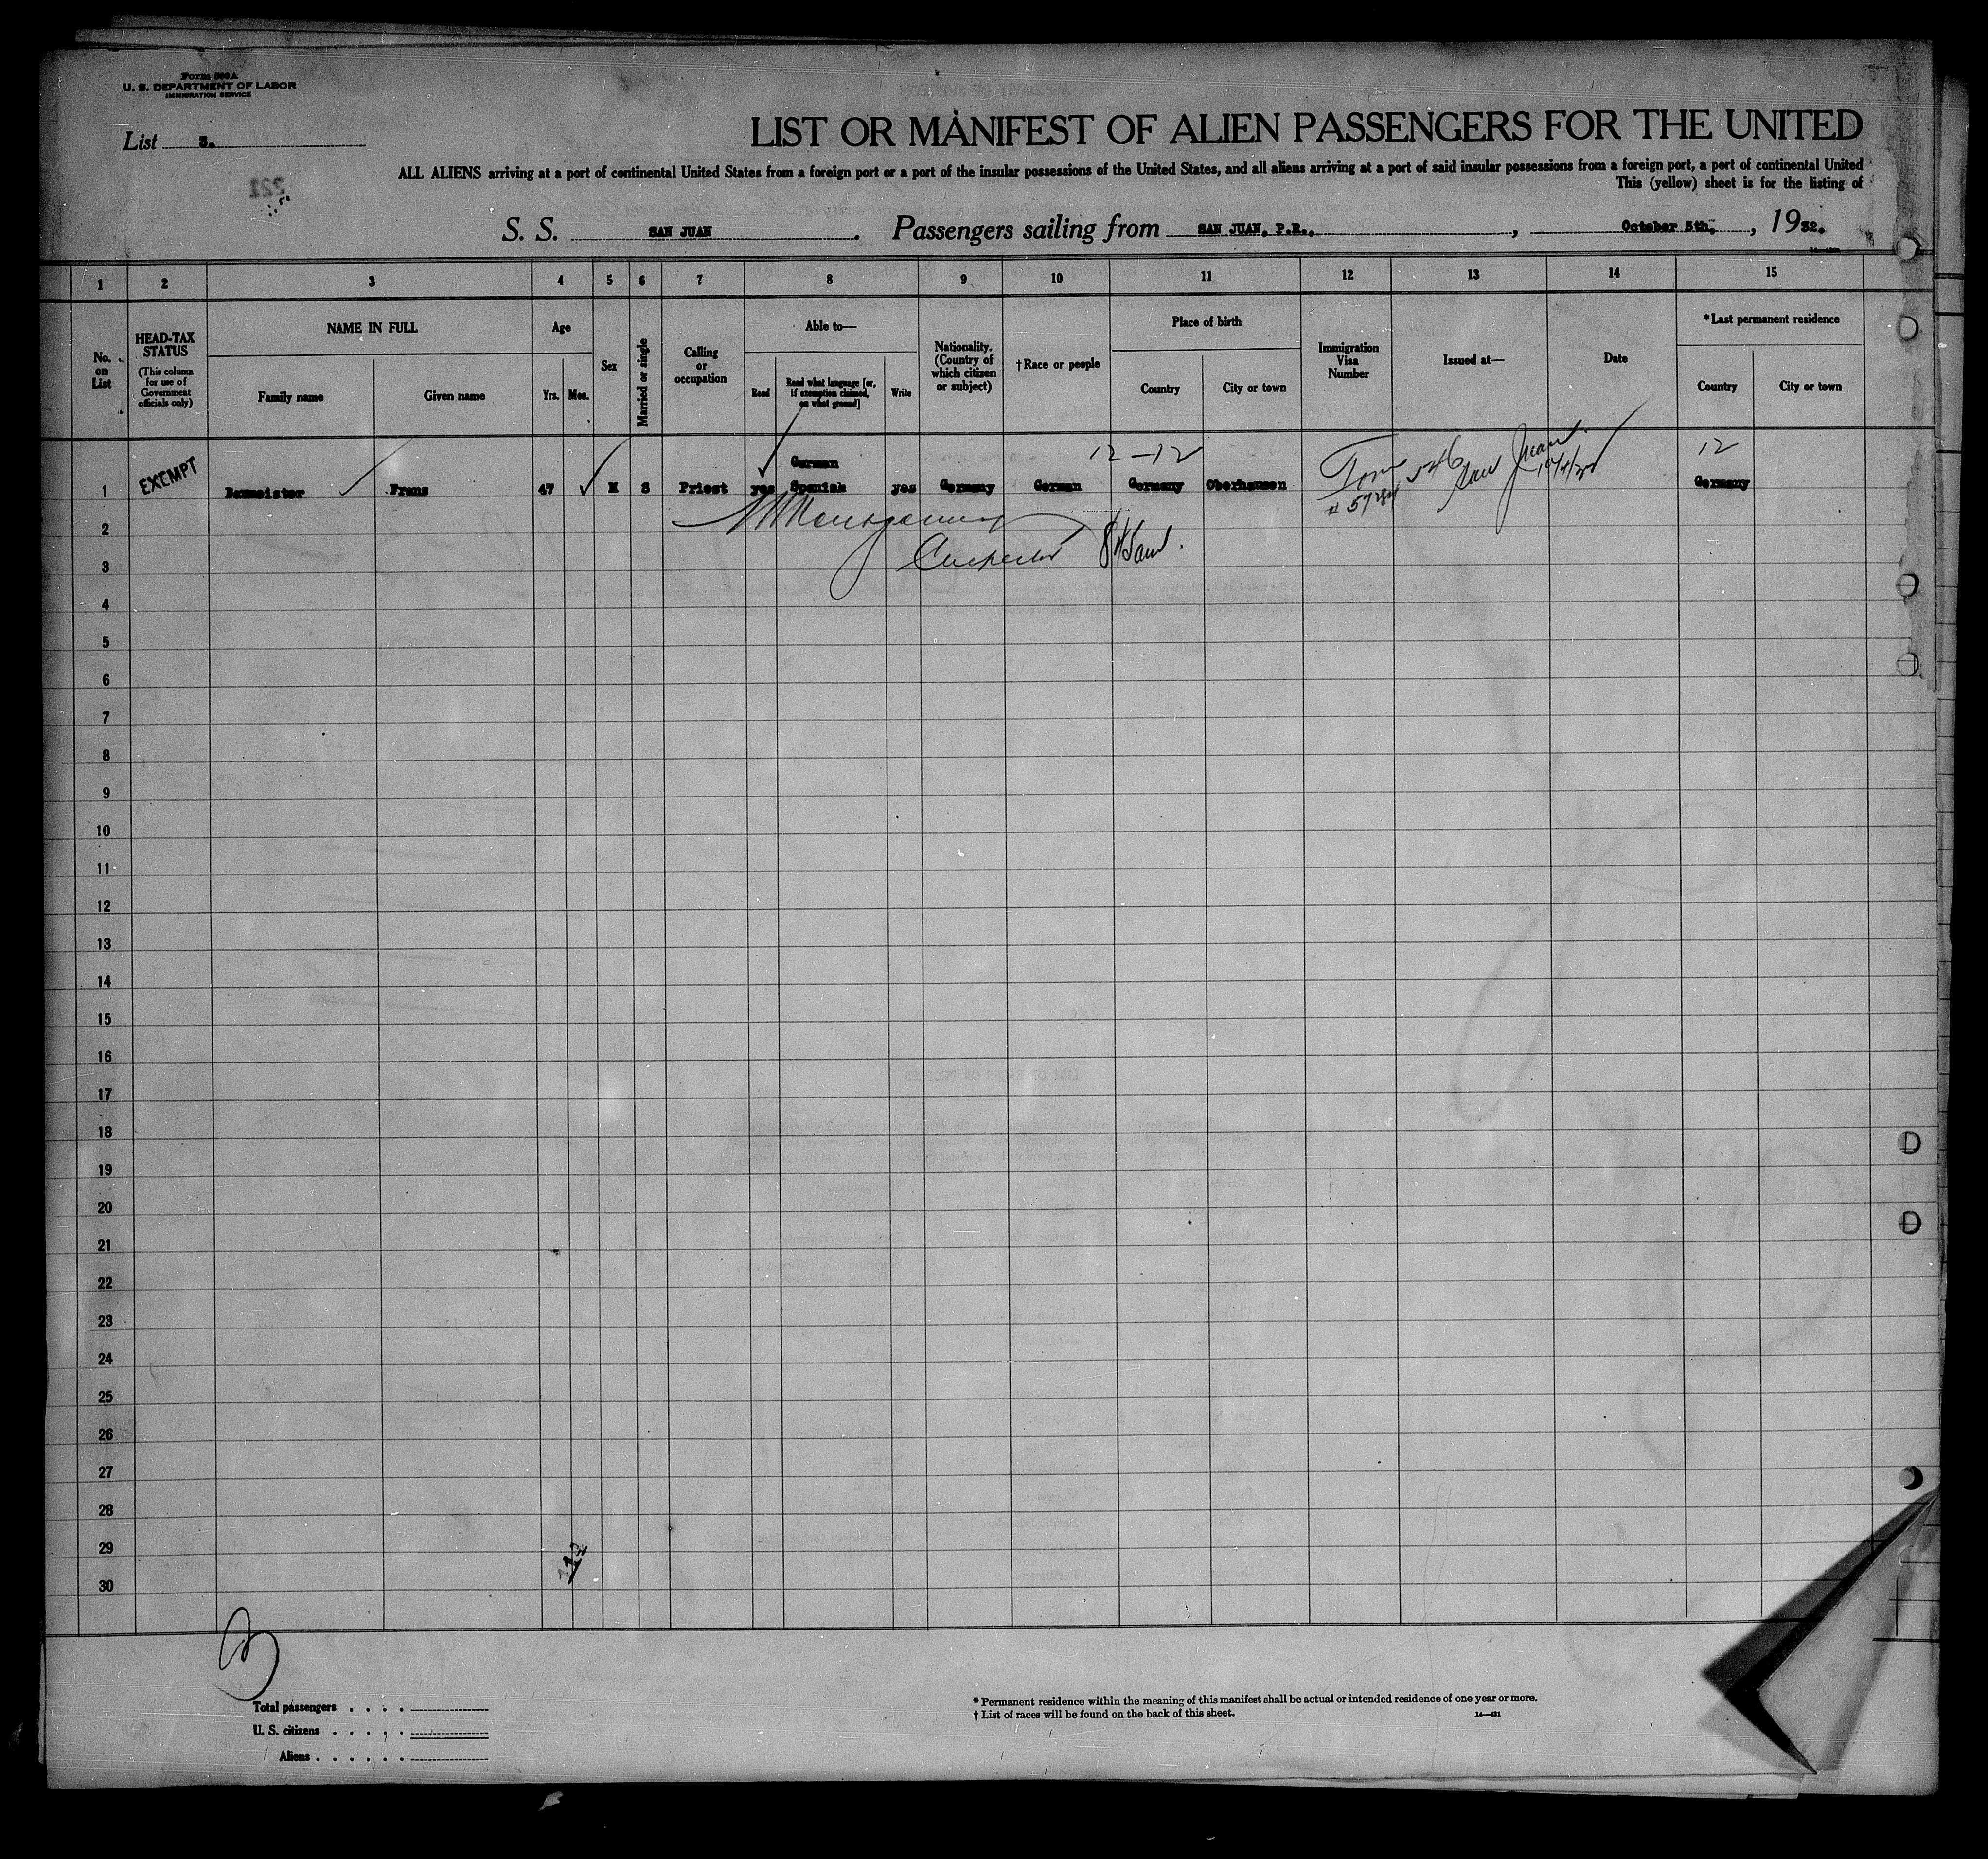 Form 500A
U. S. DEPARTMENT OF LABOR
IMMIGRATION SERVICE
List 3.
221
LIST OR MANIFEST OF ALIEN PASSENGERS FOR THE UNITED
ALL ALIENS arriving at a port of continental United States from a foreign port or a port of the insular possessions of the United States, and all aliens arriving at a port of said insular possessions from a foreign port, a port of continental United
This (yellow) sheet is for the listing of
S. S. SAN JUAN. Passengers sailing from SAN JUAN, P.R., , October 5th, , 1932.
1 2 3 4 5 6 7 8 9 10 11 12 13 14 15
No. on List
HEAD-TAX STATUS
(This column for use of Government officials only)
NAME IN FULL
Family name
Given name
Age
Yrs. Mos.
Sex
Married or single
Calling or occupation
Able to—
Read
Read what language [or, if exemption claimed, on what ground]
Write
Nationality. (Country of which citizen or subject)
† Race or people
Place of birth
Country
City or town
Immigration Visa Number
Issued at—
Date
* Last permanent residence
Country
City or town
12-12
12
German
1 EXEMPT Franz 47 M S Priest yes Spanish yes Germany German Germany Oberhausen 546 San Juan Germany
2
3
4
5
6
7
8
9
10
11
12
13
14
15
16
17
18
19
20
21
22
23
24
25
26
27
28
29
30
Total passengers . . . .
U. S. citizens . . . . .
Aliens . . . . . .
* Permanent residence within the meaning of this manifest shall be actual or intended residence of one year or more.
† List of races will be found on the back of this sheet.
14—421